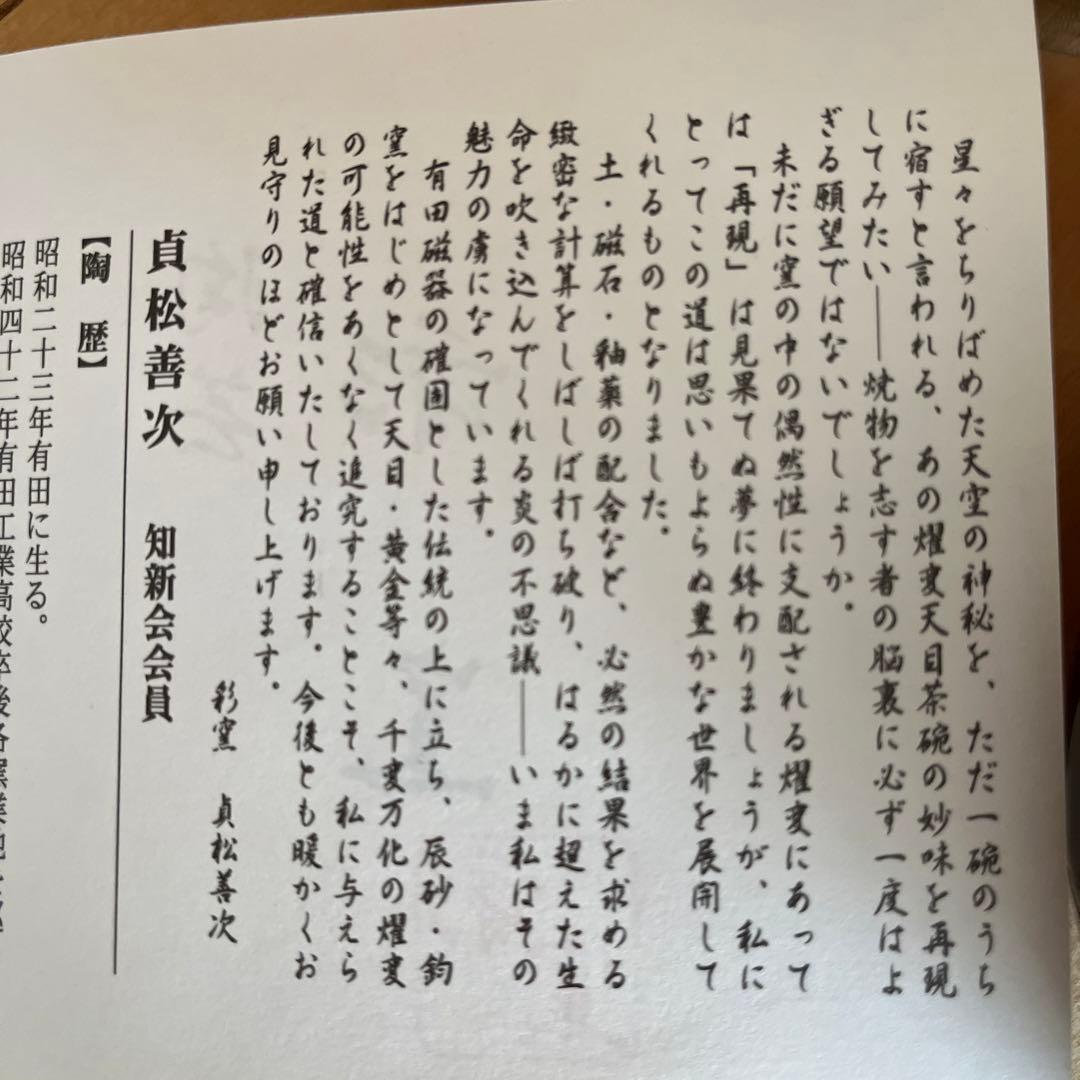 星々をちりばめた天空の神秘を、ただ一碗のうち
に宿すと言われる、あの燿変天目茶碗の妙味を再現
してみたい――焼物を志す者の脳裏に必ず一度はよ
ぎる願望ではないでしょうか。
未だに窯の中の偶然性に支配される燿変にあって
は「再現」は見果てぬ夢に終わりましょうが、私に
とってこの道は思いもよらぬ豊かな世界を展開して
くれるものとなりました。
土・磁石・釉薬の配合など、必然の結果を求める
緻密な計算をしばしば打ち破り、はるかに超えた生
命を吹き込んでくれる炎の不思議――いま私はその
魅力の虜になっています。
有田磁器の確固とした伝統の上に立ち、辰砂・鈞
窯をはじめとして天目・黄金等々、千変万化の燿変
の可能性をあくなく追究することこそ、私に与えら
れた道と確信いたしております。今後とも暖かくお
見守りのほどお願い申し上げます。
彩窯　貞松善次
貞松善次　知新会会員
【陶　歴】
昭和二十三年有田に生る。
昭和四十二年有田工業高校卒後各窯業地